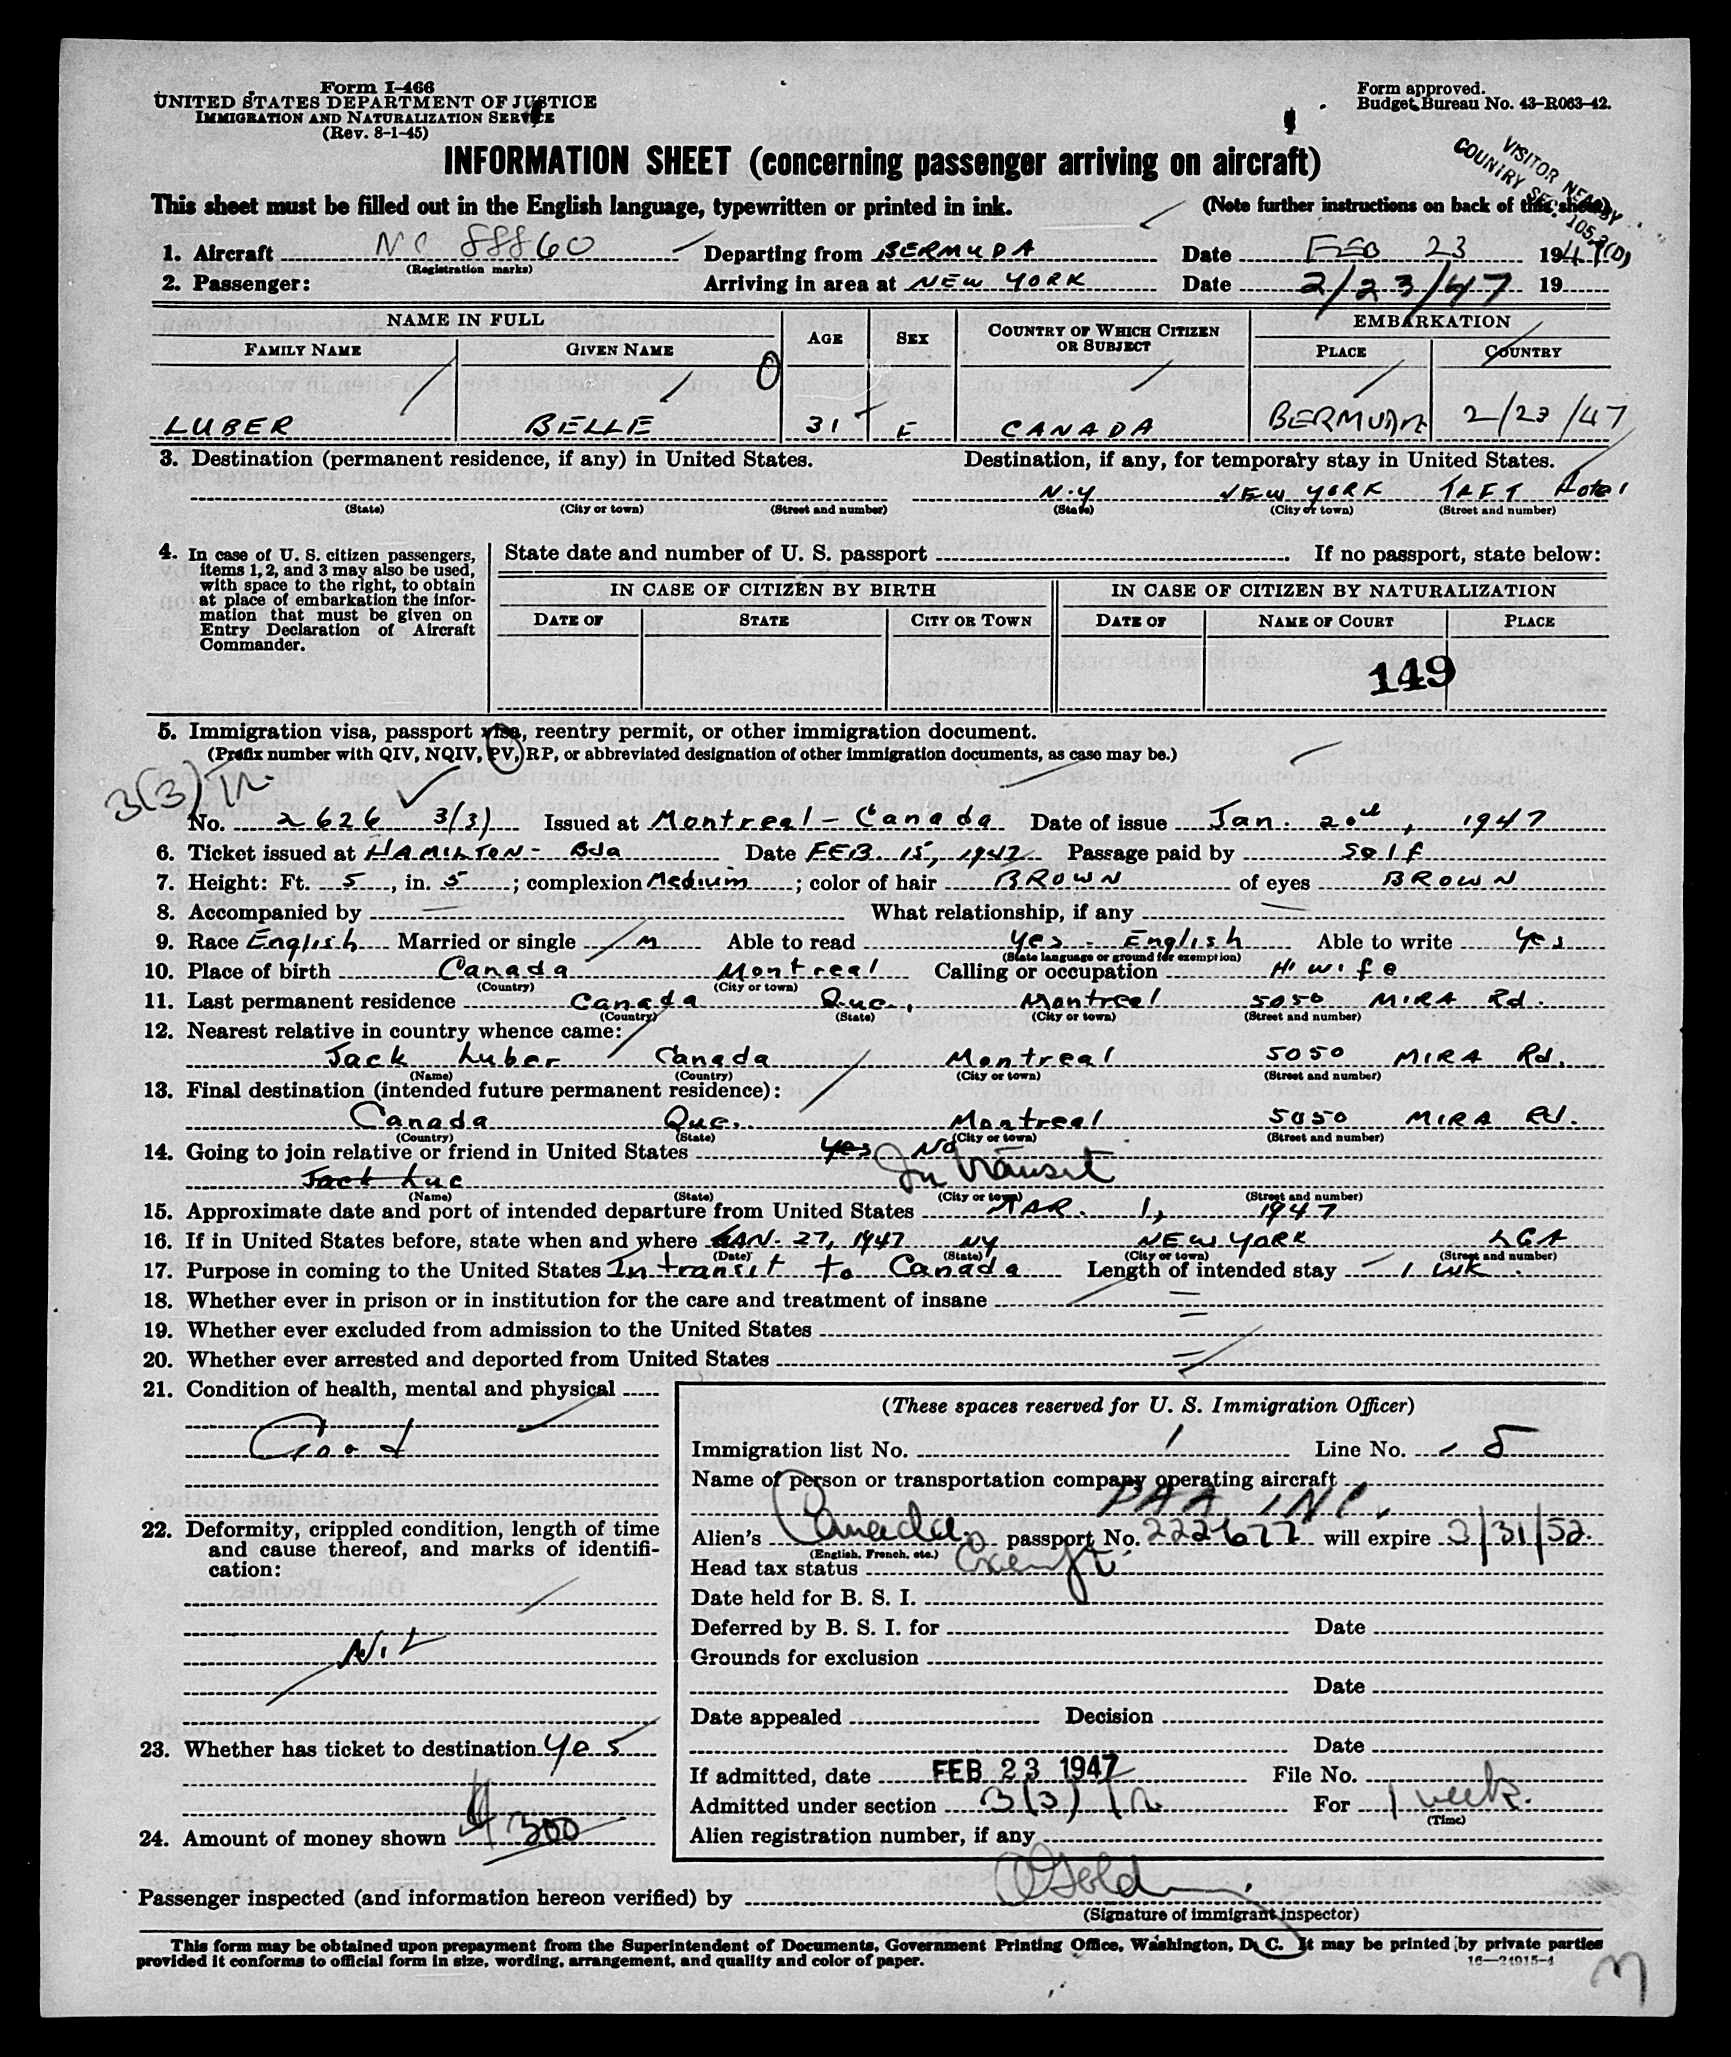 Form I-466
UNITED STATES DEPARTMENT OF JUSTICE
IMMIGRATION AND NATURALIZATION SERVICE
(Rev. 8-1-45)
Form approved.
Budget Bureau No. 43-R063-42.
INFORMATION SHEET (concerning passenger arriving on aircraft)
VISITOR NEARBY
COUNTRY SEC. 105.3(D)
This sheet must be filled out in the English language, typewritten or printed in ink. (Note further instructions on back of this sheet)
1. Aircraft NC 88860 Departing from BERMUDA Date FEB 23 1947
(Registration marks)
2. Passenger: Arriving in area at NEW YORK Date 2/23/47 19
NAME IN FULL AGE SEX COUNTRY OF WHICH CITIZEN OR SUBJECT EMBARKATION
FAMILY NAME GIVEN NAME PLACE COUNTRY
LUBER BELLE 31 F CANADA BERMUDA 2/23/47
3. Destination (permanent residence, if any) in United States. Destination, if any, for temporary stay in United States.
N.Y NEW YORK TAFT Hotel
(State) (City or town) (Street and number) (State) (City or town) (Street and number)
4. In case of U. S. citizen passengers, items 1, 2, and 3 may also be used, with space to the right, to obtain at place of embarkation the information that must be given on Entry Declaration of Aircraft Commander.
State date and number of U. S. passport If no passport, state below:
IN CASE OF CITIZEN BY BIRTH IN CASE OF CITIZEN BY NATURALIZATION
DATE OF STATE CITY OR TOWN DATE OF NAME OF COURT PLACE
149
5. Immigration visa, passport visa, reentry permit, or other immigration document.
(Prefix number with QIV, NQIV, PV, RP, or abbreviated designation of other immigration documents, as case may be.)
3(3) Tr.
No. 2626 3(3) Issued at Montreal - Canada Date of issue Jan. 20th, 1947
6. Ticket issued at HAMILTON - Bda Date FEB. 15, 1947 Passage paid by Self
7. Height: Ft. 5, in. 5; complexion Medium; color of hair BROWN of eyes BROWN
8. Accompanied by — What relationship, if any —
9. Race English Married or single M Able to read Yes - English Able to write Yes
(State language or ground for exemption)
10. Place of birth Canada Montreal Calling or occupation H'wife
(Country) (City or town)
11. Last permanent residence Canada Que., Montreal 5050 MIRA Rd.
(Country) (State) (City or town) (Street and number)
12. Nearest relative in country whence came:
Jack Luber Canada Montreal 5050 MIRA Rd.
(Name) (Country) (City or town) (Street and number)
13. Final destination (intended future permanent residence):
Canada Que. Montreal 5050 MIRA Rd.
(Country) (State) (City or town) (Street and number)
14. Going to join relative or friend in United States Yes No
Jack Luc In transit
(Name) (State) (City or town) (Street and number)
15. Approximate date and port of intended departure from United States MAR. 1, 1947
16. If in United States before, state when and where JAN. 27, 1947 NY NEW YORK LGA
(Date) (State) (City or town) (Street and number)
17. Purpose in coming to the United States In transit to Canada Length of intended stay 1 wk.
18. Whether ever in prison or in institution for the care and treatment of insane
19. Whether ever excluded from admission to the United States
20. Whether ever arrested and deported from United States
21. Condition of health, mental and physical
Good
22. Deformity, crippled condition, length of time and cause thereof, and marks of identification:
NIL
23. Whether has ticket to destination Yes
24. Amount of money shown $300
(These spaces reserved for U. S. Immigration Officer)
Immigration list No. 1 Line No. 5
Name of person or transportation company operating aircraft
PAA INC.
Alien's Canada passport No. 222677 will expire 3/31/52.
(English, French, etc.)
Head tax status Exempt
Date held for B. S. I.
Deferred by B. S. I. for Date
Grounds for exclusion
Date
Date appealed Decision
Date
If admitted, date FEB 23 1947 File No.
Admitted under section 3(3) Tr. For 1 week.
(Time)
Alien registration number, if any
Passenger inspected (and information hereon verified) by
(Signature of immigrant inspector)
This form may be obtained upon prepayment from the Superintendent of Documents, Government Printing Office, Washington, D. C. It may be printed by private parties
provided it conforms to official form in size, wording, arrangement, and quality and color of paper. 16—24915-4